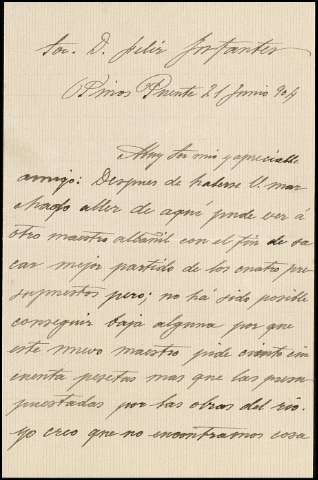 Sor. D. Felix Infantes
Pinos Puente 21 Junio 904
Muy Sor mio y apreciable
amigo: Despues de haberse V. mar
chado aller de aquí pude ver á
otro maestro albañil con el fin de sa
car mejor partido de los cuatro pre
supuestos pero; no há sido posible
conseguir baja alguna por que
este nuevo maestro pide ciento cin
cuenta pesetas mas que las presu
puestadas por las obras del rio.
Yo creo que no encontramos cosa